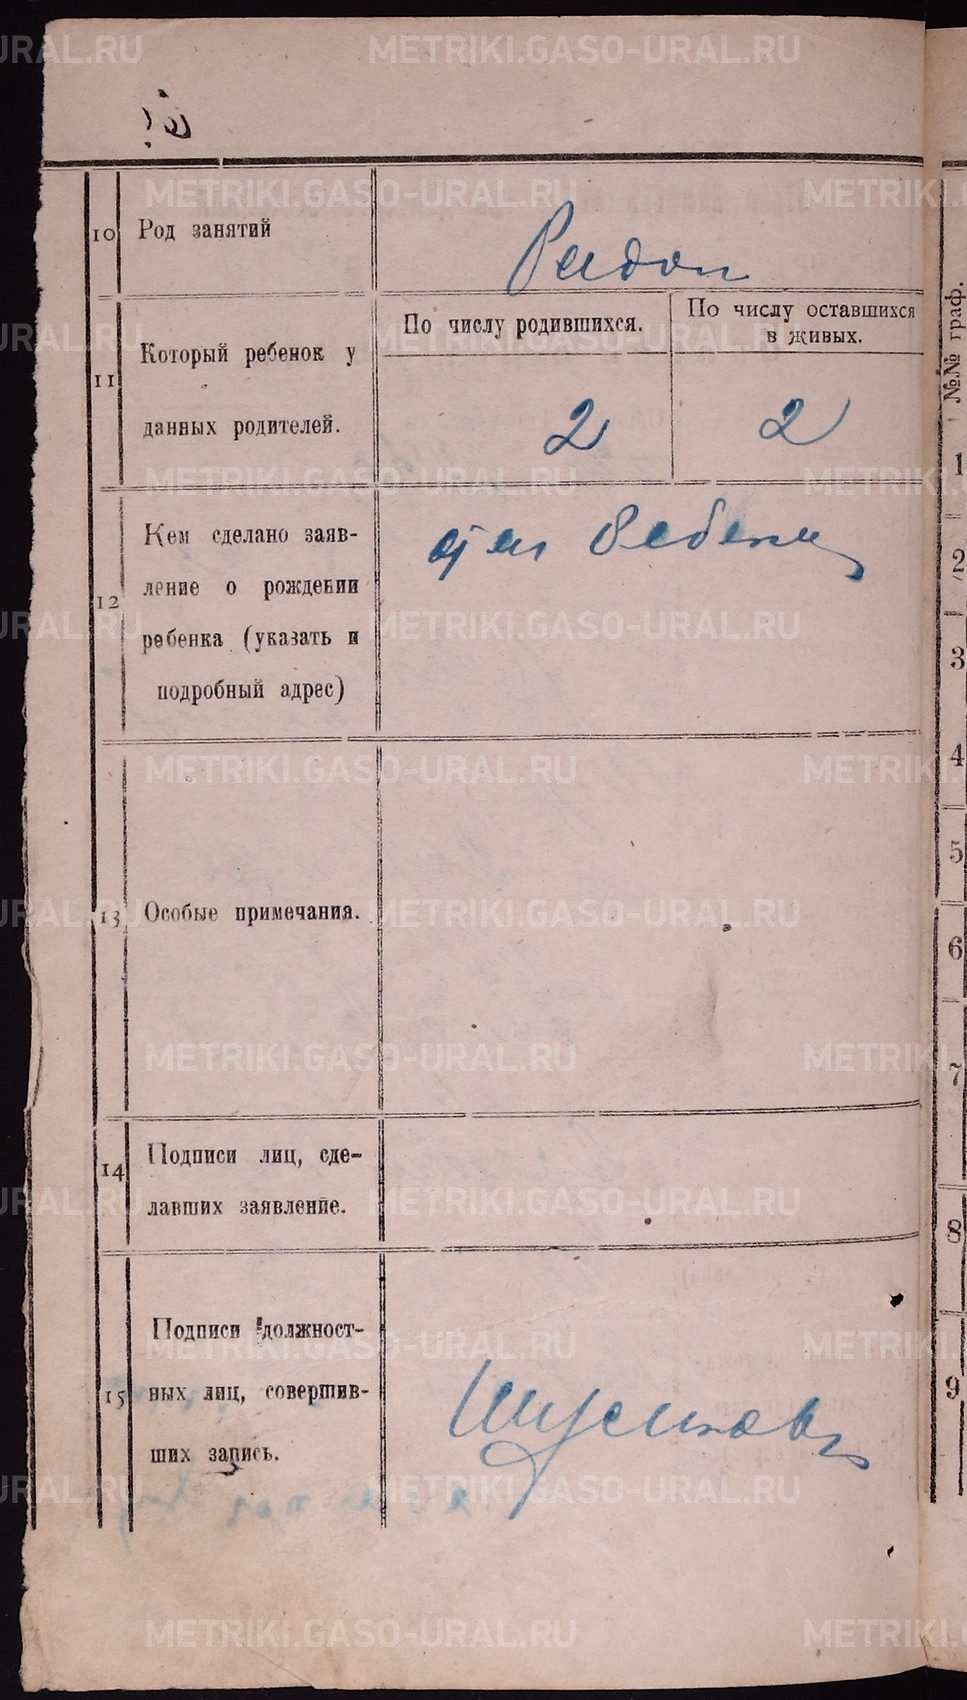 METRIKI.GASO-URAL.RU
10 Род занятий
11 Который ребенок у
данных родителей.
По числу родившихся.
По числу оставшихся
в живых.
2 2
12 Кем сделано заяв-
ление о рождении
ребенка (указать и
подробный адрес)
13 Особые примечания.
14 Подписи лиц, сде-
лавших заявление.
15 Подписи должност-
ных лиц, совершив-
ших запись.
№№ граф.
1
2
3
4
5
6
7
8
9